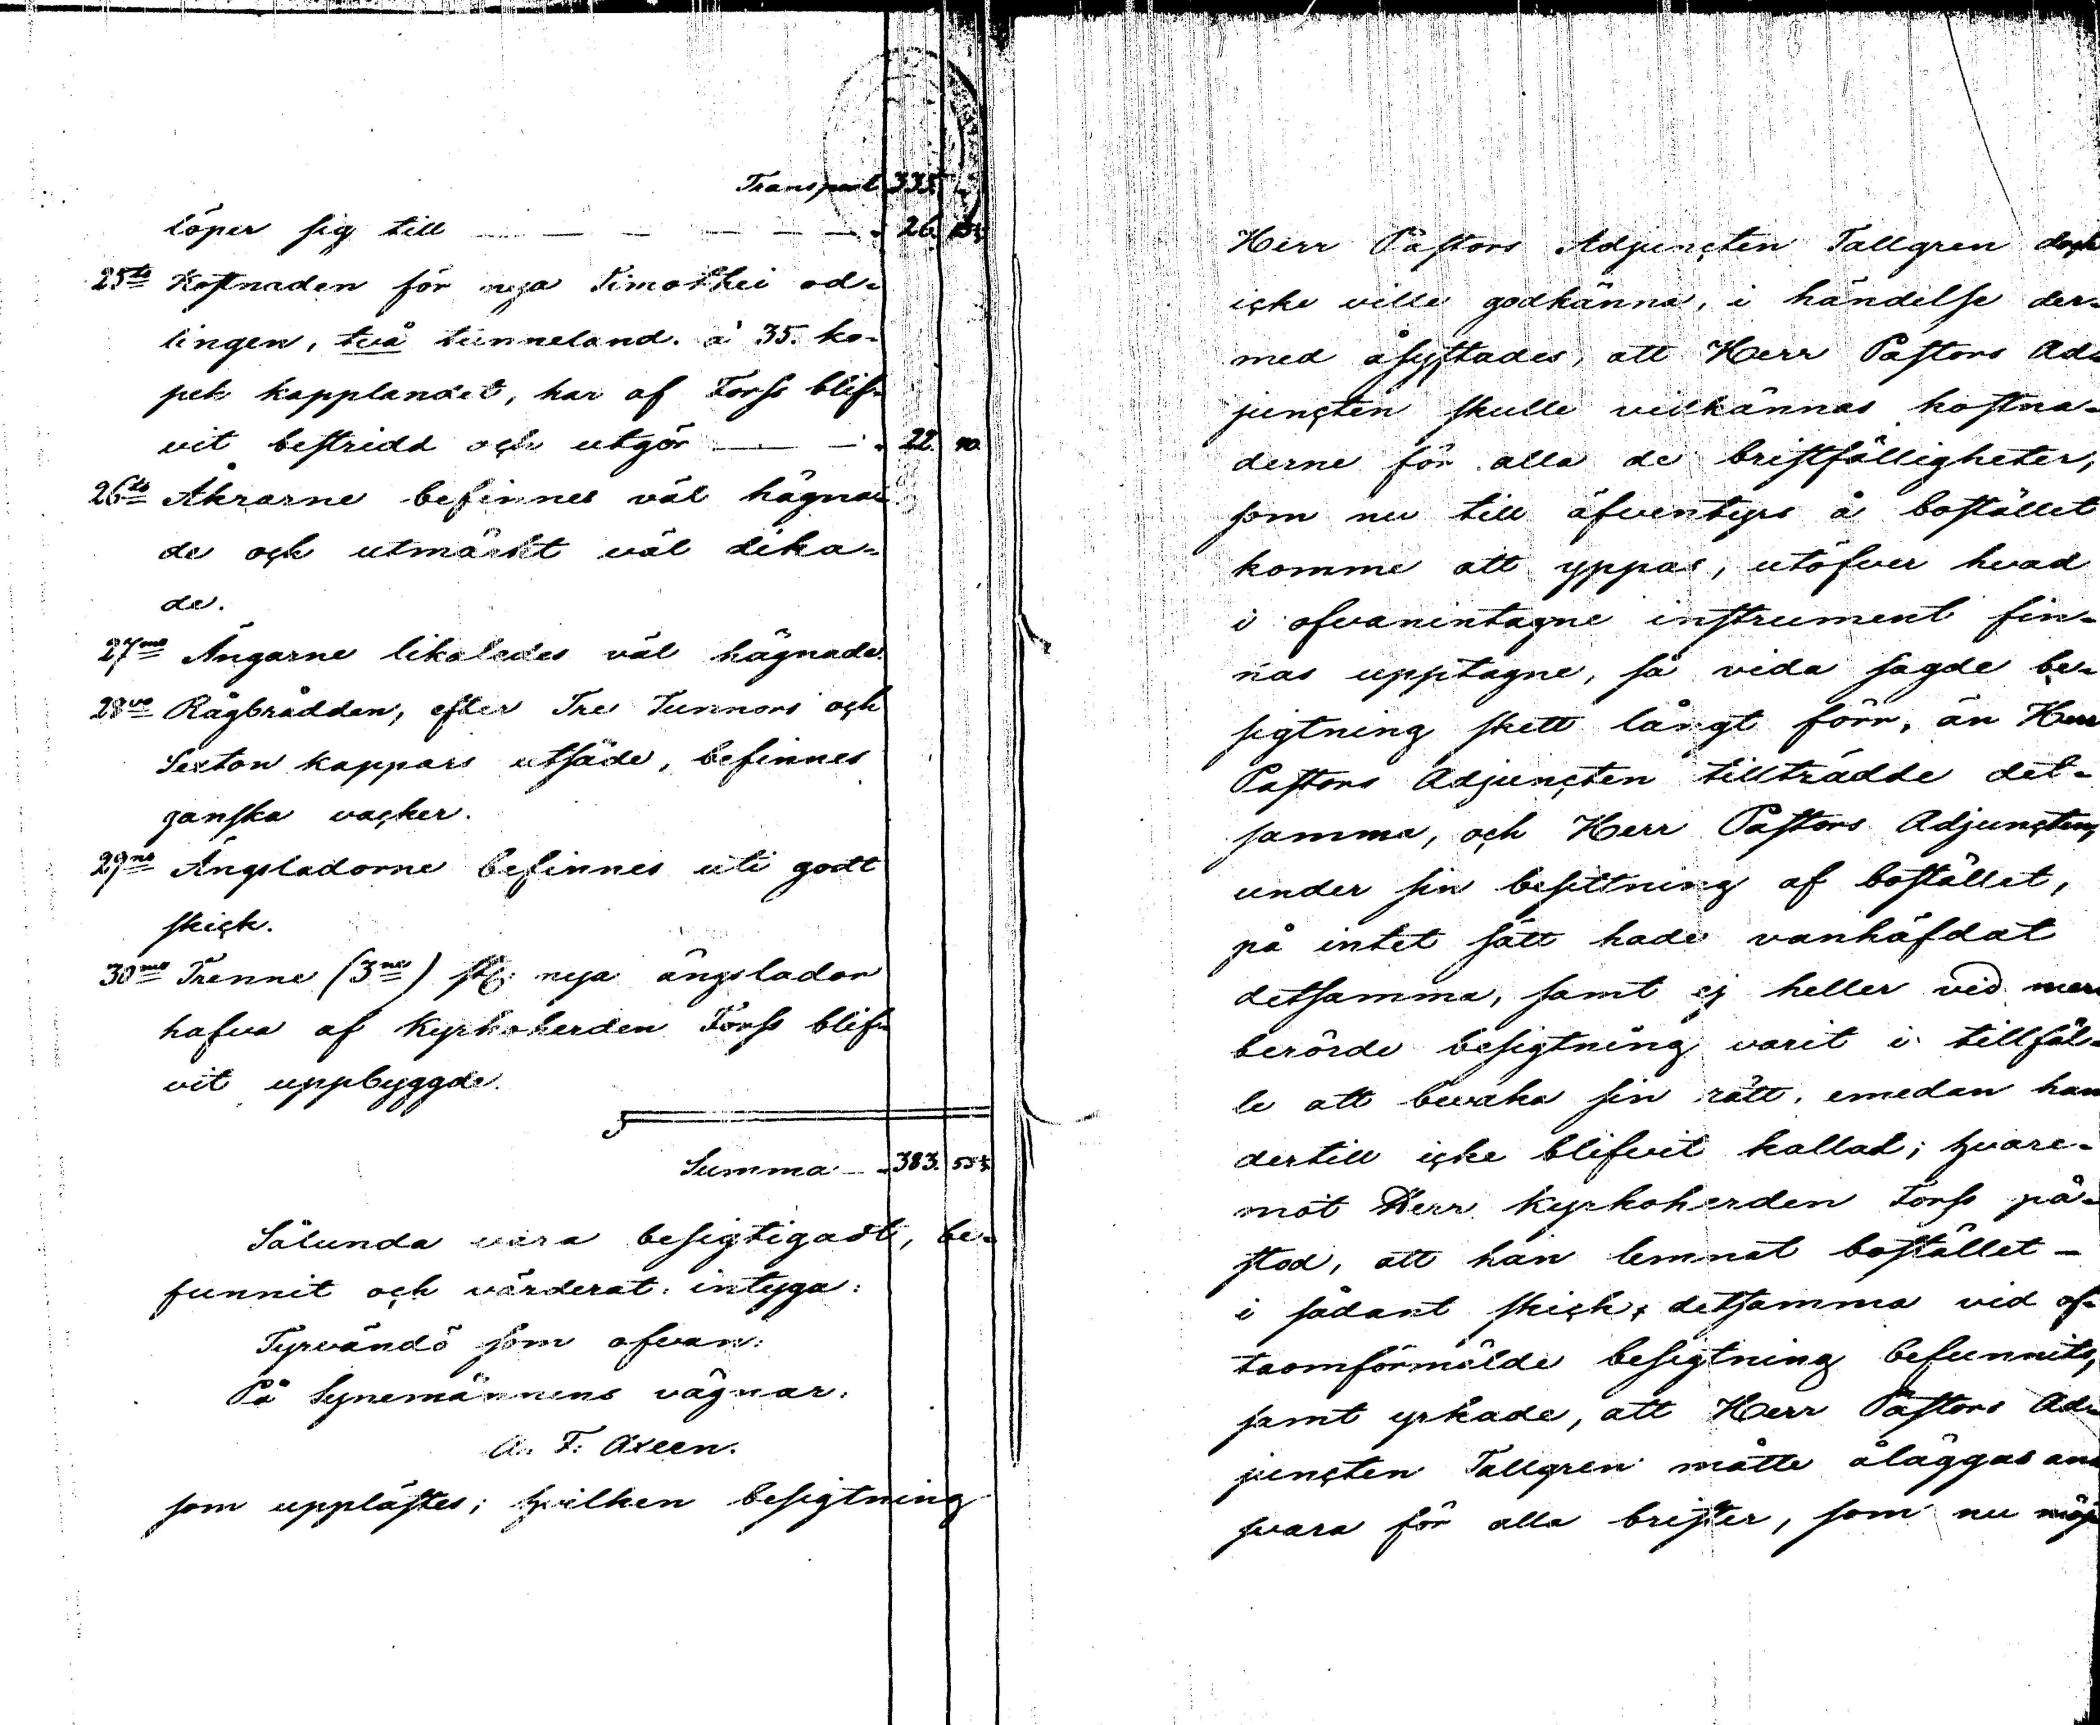 Transport 335
löper sig till — — — — — — 26.
25to Kostnaden för nya Timothei od-
lingen, två tunneland. à 35. ko-
pek kapplandet, har af Forss blif-
vit bestridd och utgör — — 22. 40.
26to Åkrarne befinnes väl hägna-
de och utmärkt väl dika-
de.
27mo Ängarne likaledes väl hägnade.
28vo Rågbrådden, efter Tre Tunnors och
Sexton kappars utsäde, befinnes
ganska vacker.
29no Ängsladorne befinnes uti godt
skick.
30mo Trenne (3ne) st: nya ängslador
hafva af Kyrkoherden Forss blif-
vit uppbyggde.
Summa — 383.
Sålunda vara besigtigadt, be-
funnit och värderat: intyga:
Tyrvändö som ofvan:
På Synemännens vägnar.
A. F. Axeen.
som upplästes; hvilken besigtning
Herr Pastors Adjuncten Tallgren dock
icke ville godkänna, i händelse der-
med åsyftades, att Herr Pastors Ad-
juncten skulle vidkännas kostna-
derne för alla de bristfälligheter,
som nu till äfventyrs å bostället
komme att yppas, utöfver hvad
i ofvanintagne instrument fin-
nas upptagne, så vida sagde be-
sigtning skett långt förr, än Herr
Pastors Adjuncten tillträdde det-
samma, och Herr Pastors Adjuncten,
under sin besittning af bostället,
på intet sätt hade vanhäfdat
detsamma, samt ej heller vid mer-
berörde besigtning varit i tillfäl-
le att bevaka sin rätt, emedan han
dertill icke blifvit kallad; hvare-
mot Herr Kyrkoherden Forss på-
stod, att han lemnat bostället -
i sådant skick, detsamma vid of-
taomförmälde besigtning befunnits,
samt yrkade, att Herr Pastors Ad-
juncten Tallgren måtte åläggas an-
svara för alla brister, som nu